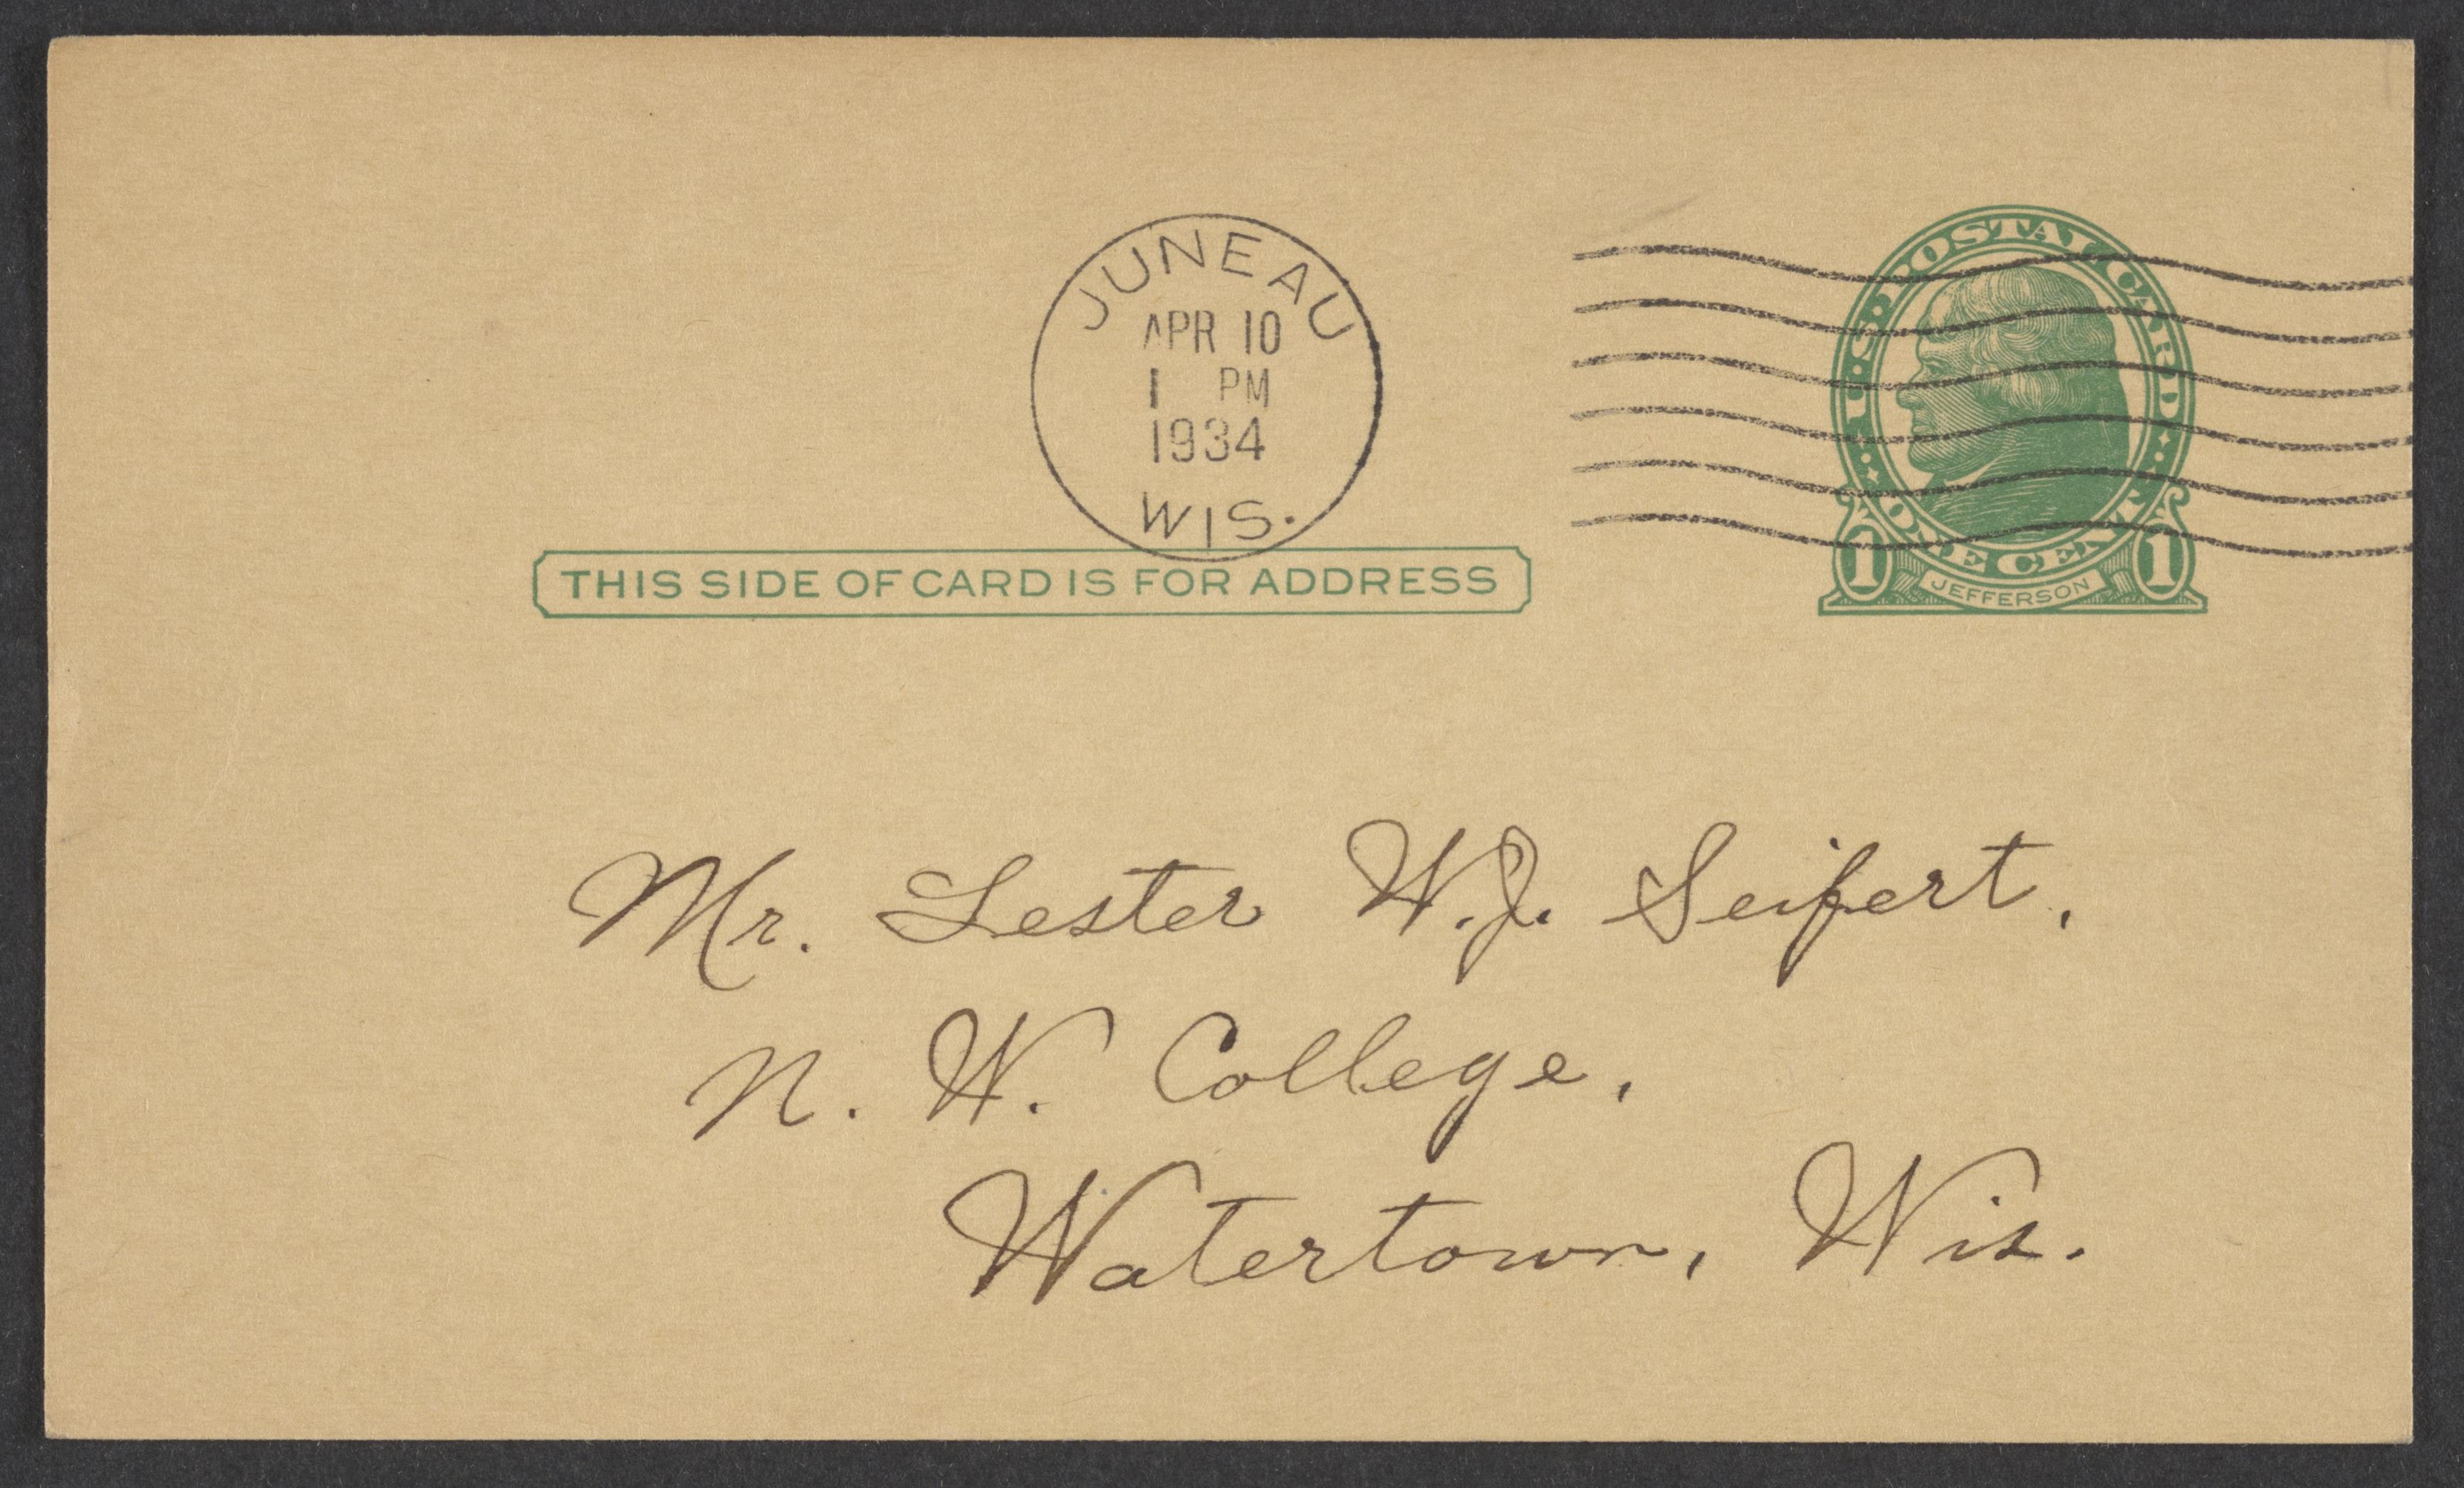 JUNEAU
APR 10
1 PM
1934
WIS.
U·S·POSTAL CARD
ONE CENT
1 JEFFERSON 1
THIS SIDE OF CARD IS FOR ADDRESS
Mr. Lester W.J. Seifert,
N. W. College,
Watertown, Wis.